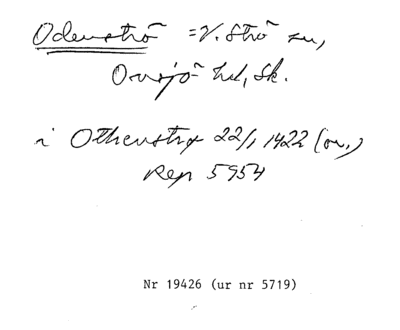 Odenströ = V. Strö sn,
Onsjö hd, Sk.
i Othenströ 22/1 1422 (or.)
Rep 5954
Nr 19426 (ur nr 5719)